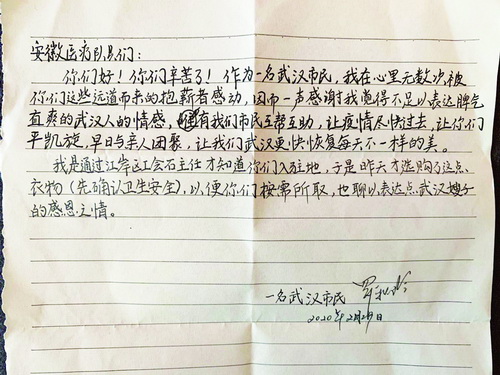 安徽医疗队员们：
你们好！你们辛苦了！作为一名武汉市民，我在心里无数次被
你们这些远道而来的抱薪者感动，因而一声感谢我觉得不足以表达脾气
直爽的武汉人的情感，有我们市民互帮互助，让疫情尽快过去，让你们
平凯旋，早日与亲人团聚，让我们武汉更快恢复每天不一样的美。
我是通过江岸区工会石主任才知道你们入驻地，于是昨天才选购了这点
衣物（先确认卫生安全），以便你们按需所取，也聊以表达点武汉嫂子
的感恩之情。
一名武汉市民 罗
2020年2月29日